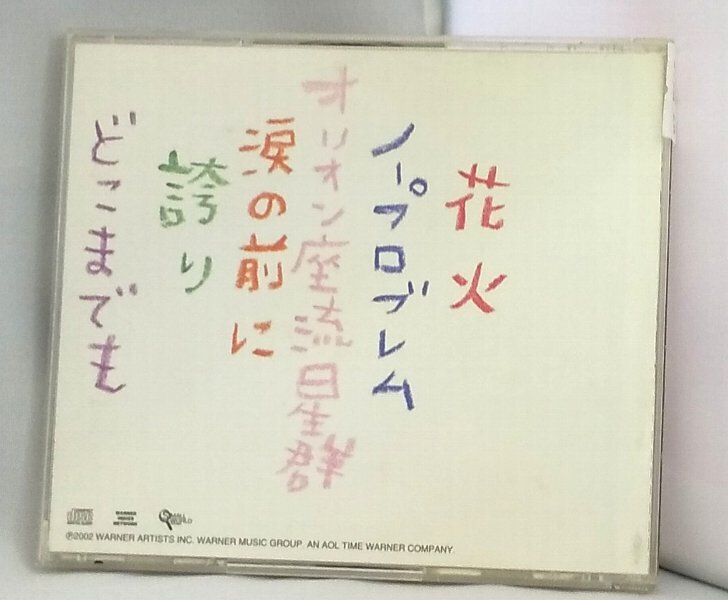 花火
ノープロブレム
オリオン座流星群
涙の前に
誇り
どこまでも
℗2002 WARNER ARTISTS INC. WARNER MUSIC GROUP. AN AOL TIME WARNER COMPANY